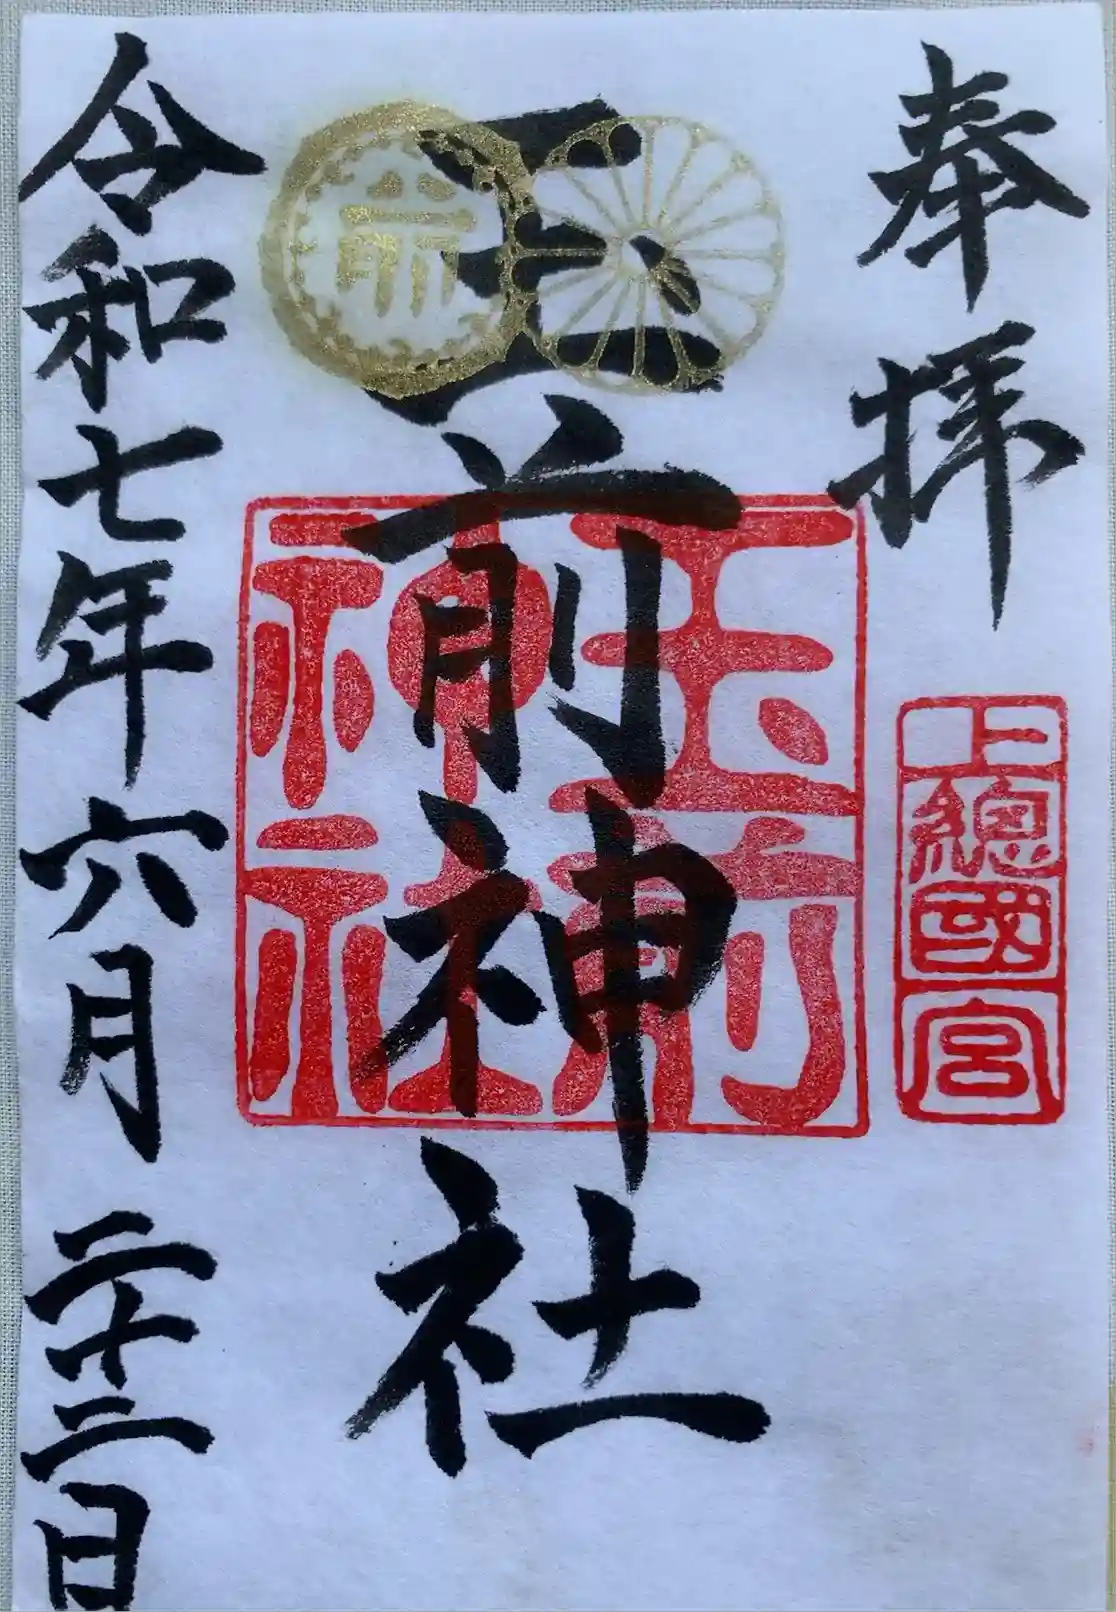 奉拝
上總國一宮
玉前神社
玉前
神社
令和七年六月二十三日